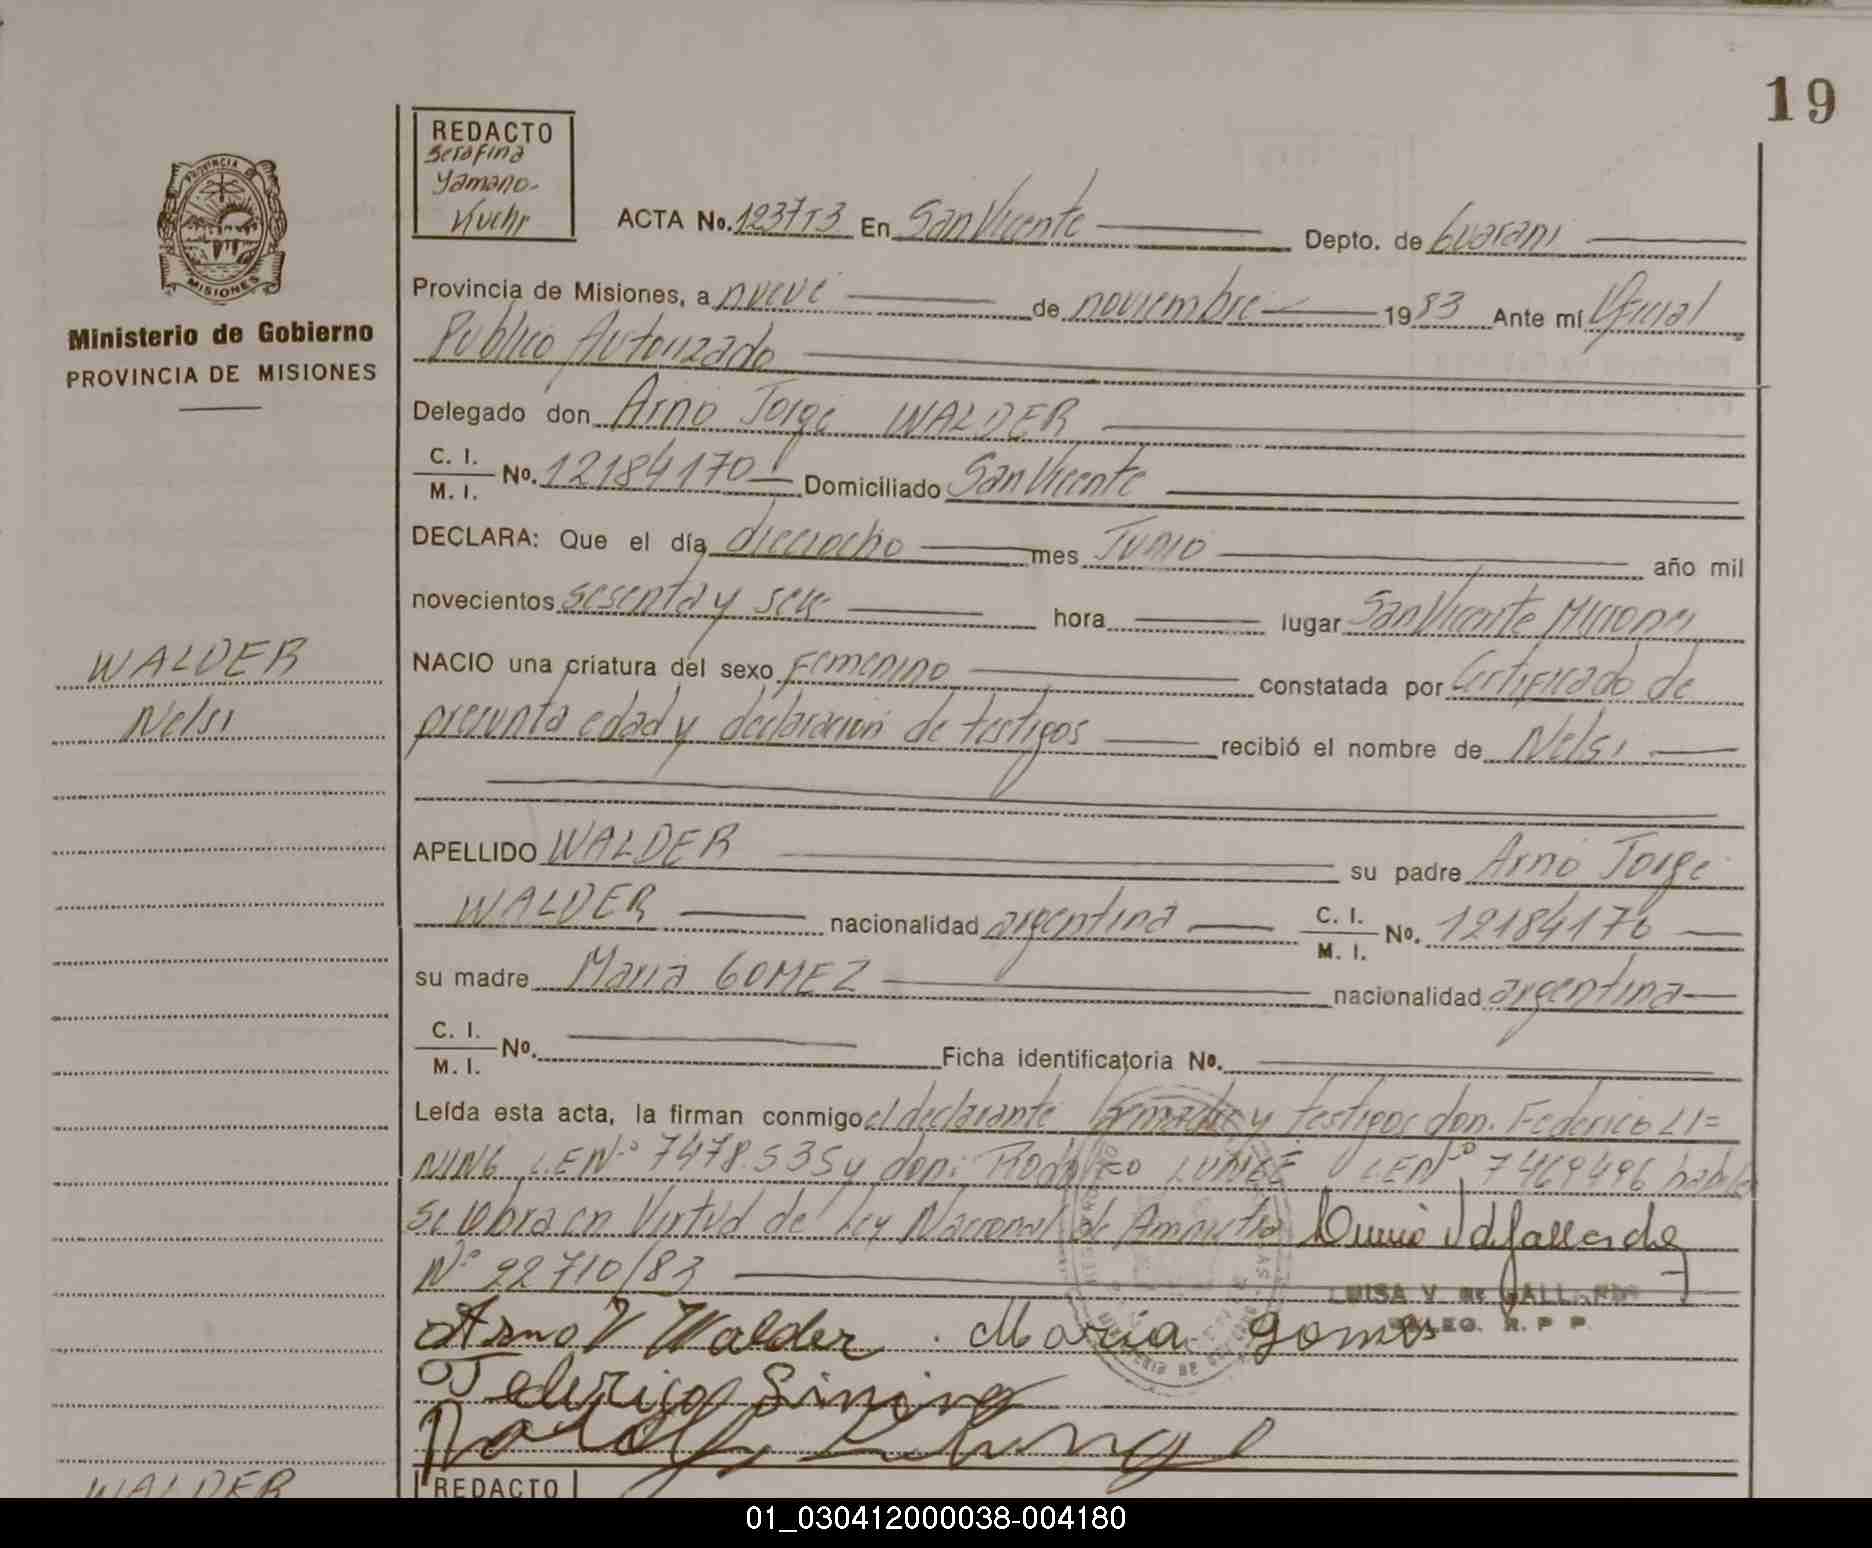 19
REDACTO
Serafina
Yamano-
PROVINCIA
MISIONES
Ministerio de Gobierno
PROVINCIA DE MISIONES
ACTA No. 1237T3 En San Vicente Depto. de Guarani
Provincia de Misiones, a nueve de noviembre 1983 Ante mí Oficial
Publico Autorizado
Delegado don Arno Jorge WALDER
C. I.
M. I. No. 12184170 Domiciliado San Vicente
DECLARA: Que el día dieciocho mes Junio año mil
novecientos sesenta y seis hora lugar San Vicente Misiones
WALDER
Nelsi
NACIO una criatura del sexo Femenino constatada por Certificado de
presunta edad y declaracion de testigos recibió el nombre de Nelsi
APELLIDO WALDER su padre Arno Jorge
WALDER nacionalidad argentina C. I. M. I. No. 12184170
su madre Maria GOMEZ nacionalidad argentina
C. I.
M. I. No. Ficha identificatoria No.
Leída esta acta, la firman conmigo el declarante la madre y testigos don. Federico LI=
NING L.E Nº 7478.535 y don: Rodolfo L.E Nº 7469496
se labra en Virtud de Ley Nacional de Amnistia
Nº 22710/83
LUISA V. de GALLARDO
R. P P.
Arno J Walder. Maria gomes
Federico Lining
WALDER
REDACTO
01_030412000038-004180